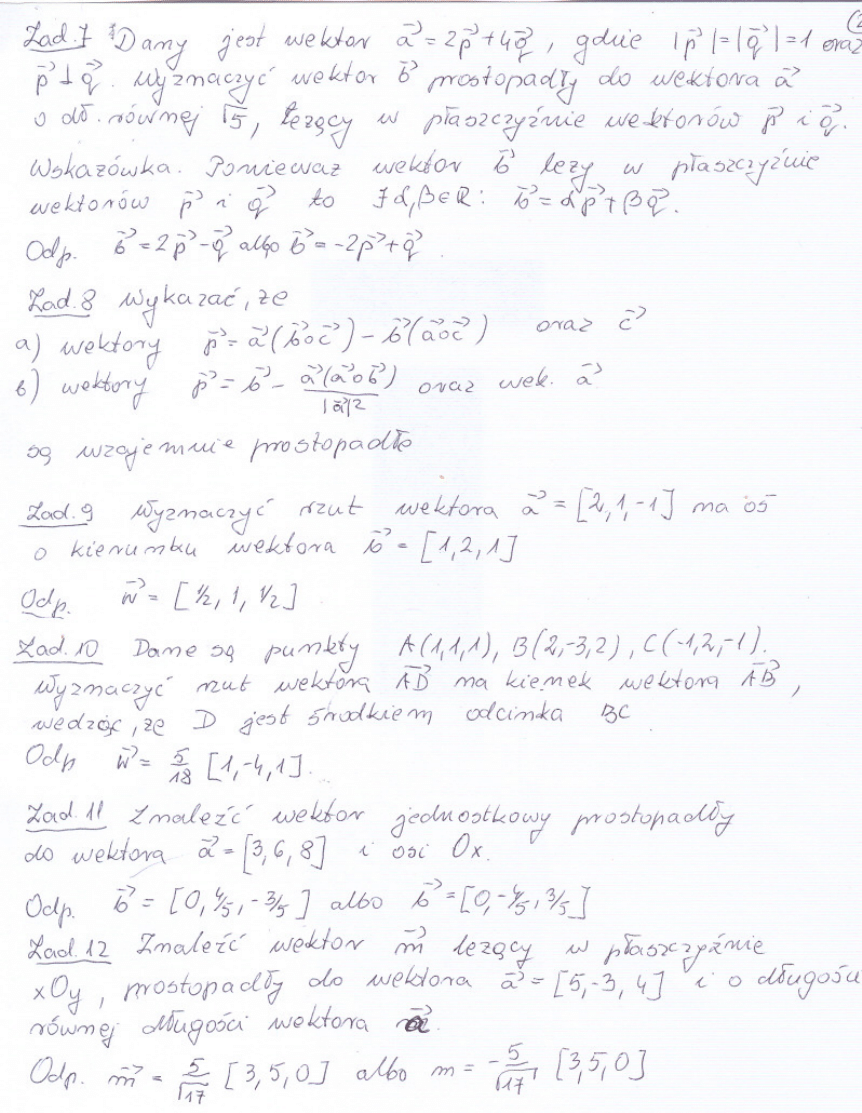 (2
Zad.7 Dany jest wektor a⃗ = 2p⃗ + 4q⃗, gdzie |p⃗| = |q⃗| = 1 oraz
p⃗ ⊥ q⃗. Wyznaczyć wektor b⃗ prostopadły do wektora a⃗
o dł. równej √5, leżący w płaszczyźnie wektorów p⃗ i q⃗.
Wskazówka. Ponieważ wektor b⃗ leży w płaszczyźnie
wektorów p⃗ i q⃗ to ∃ α,β∈R: b⃗ = αp⃗ + βq⃗.
Odp. b⃗ = 2p⃗ - q⃗ albo b⃗ = -2p⃗ + q⃗.
Zad.8 Wykazać, że
a) wektory p⃗ = a⃗(b⃗∘c⃗) - b⃗(a⃗∘c⃗) oraz c⃗
b) wektory p⃗ = b⃗ - a⃗(a⃗∘b⃗)/|a⃗|² oraz wek. a⃗
są wzajemnie prostopadłe
Zad.9 Wyznaczyć rzut wektora a⃗ = [2,1,-1] na oś
o kierunku wektora b⃗ = [1,2,1]
Odp. w⃗ = [1/2, 1, 1/2]
Zad.10 Dane są punkty A(1,1,1), B(2,-3,2), C(-1,2,-1).
Wyznaczyć rzut wektora AD⃗ na kierunek wektora AB⃗,
wiedząc, że D jest środkiem odcinka BC
Odp w⃗ = 5/18 [1,-4,1].
Zad.11 Znaleźć wektor jednostkowy prostopadły
do wektora a⃗ = [3,6,8] i osi Ox.
Odp. b⃗ = [0, 4/5, -3/5] albo b⃗ = [0, -4/5, 3/5]
Zad.12 Znaleźć wektor m⃗ leżący w płaszczyźnie
xOy, prostopadły do wektora a⃗ = [5,-3,4] i o długości
równej długości wektora a⃗.
Odp. m⃗ = 5/√17 [3,5,0] albo m = -5/√17 [3,5,0]